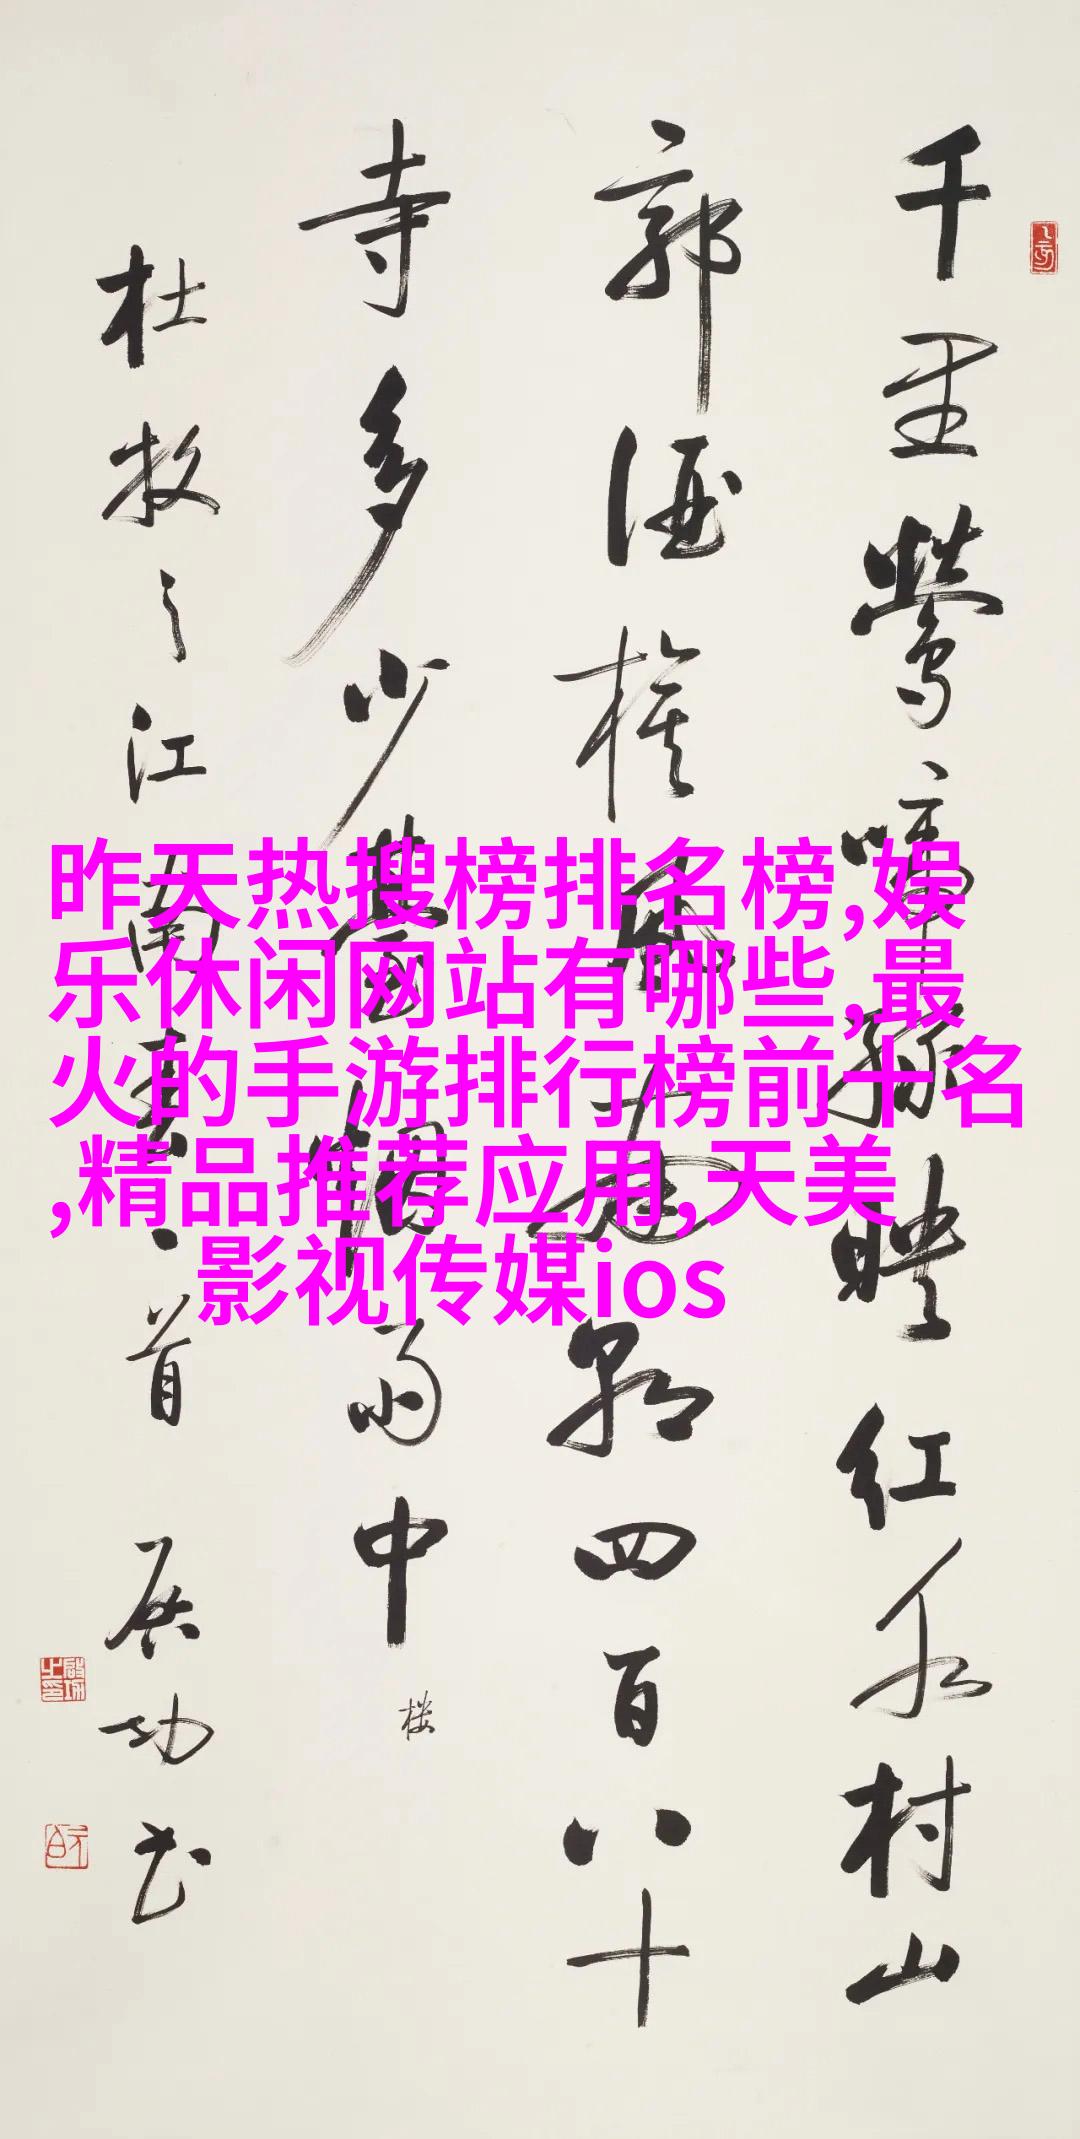 千里鶯啼綠映红水村山
郭酒旗風南朝四百八十
寺多少臺烟雨中
楼
杜牧之江南春一首 启功书
昨天热搜榜排名榜,娱
乐休闲网站有哪些,最
火的手游排行榜前十名
,精品推荐应用,天美
影视传媒ios